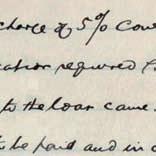 charge of 5% Cove
cation required f
to the loan came
to be paid and in c